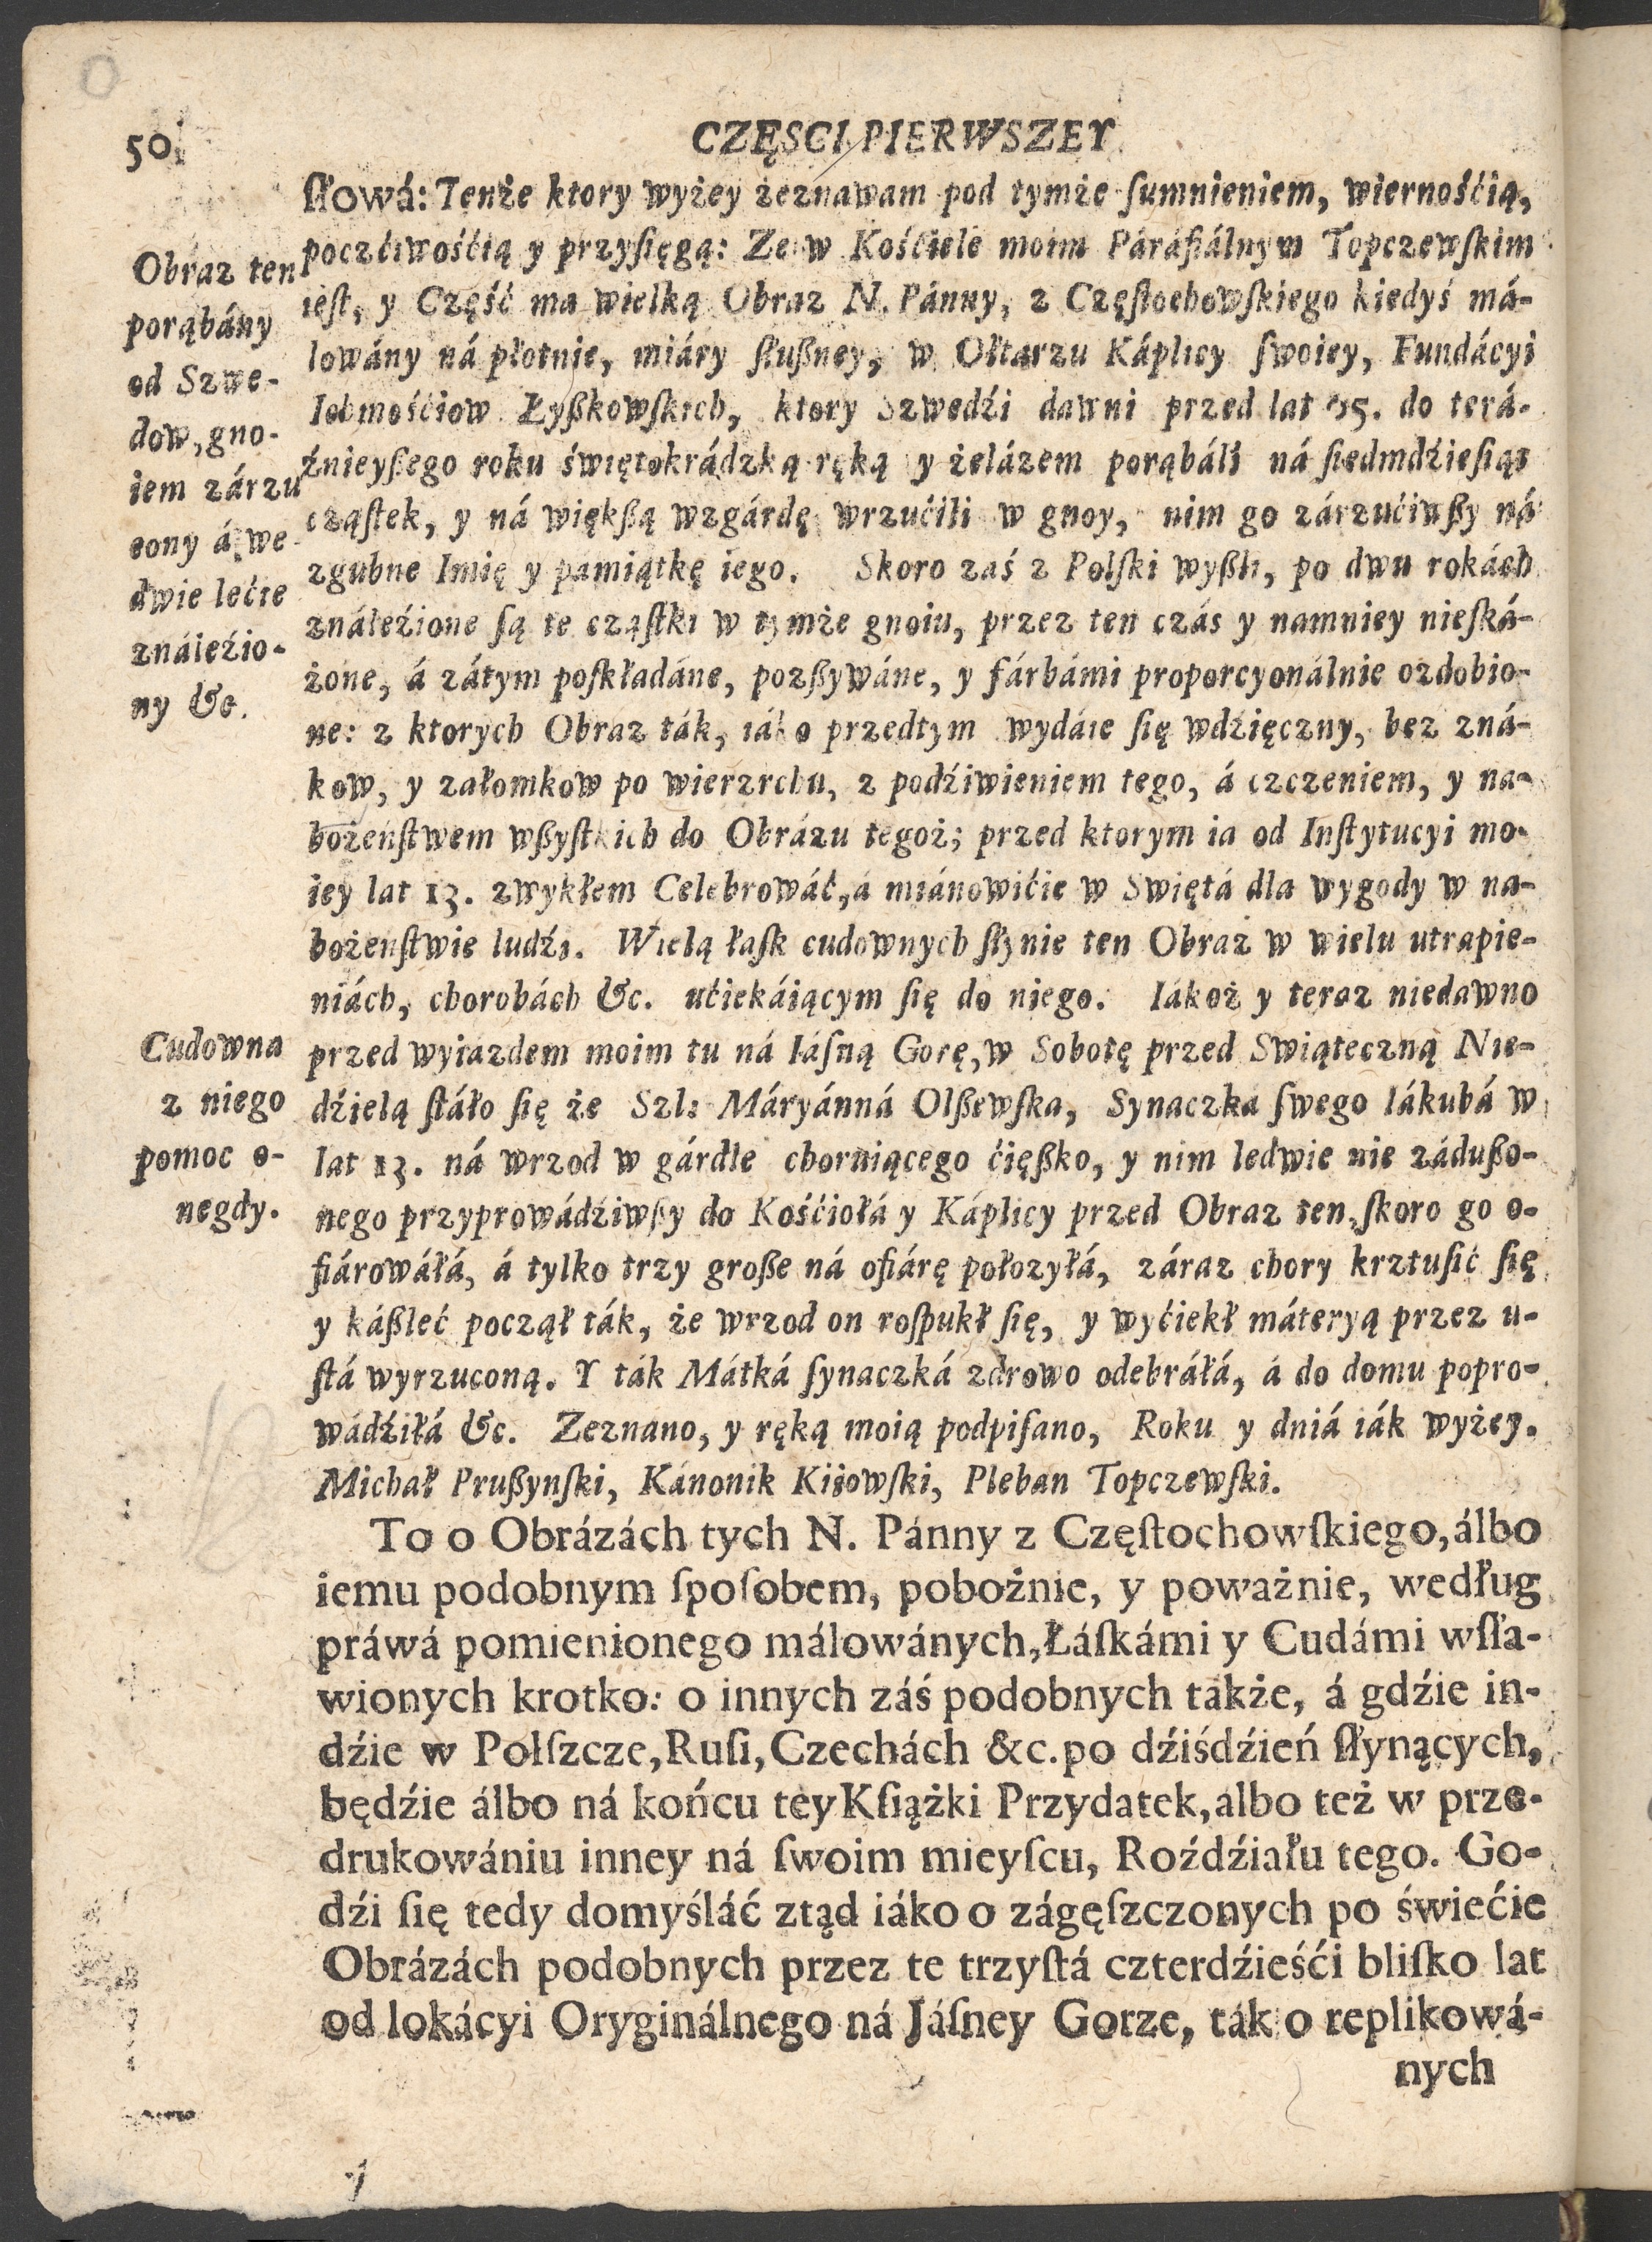 50
CZĘSCI PIERWSZEY
ſłowá: Tenże ktory wyżey żeznawam pod tymże ſumnieniem, wiernośćią,
poczćiwośćią y przyſięgą: Ze w Kośćiele moim Páráfiálnym Topczewſkim
ieſt, y Część ma wielką Obraz N. Pánny, z Częſtochowſkiego kiedyś má-
lowány ná płotnie, miáry ſłußney, w Ołtarzu Káplicy ſwoiey, Fundácyi
Ichmośćiow Łyßkowſkich, ktory Szwedźi dawni przed lat 15. do terá-
źnieyßego roku świętokrádzką ręką y żelázem porąbáli ná ſiedmdźieſiąt
cząſtek, y ná więkßą wzgárdę wrzućili w gnoy, nim go zárzućiwßy ná
zgubne Imię y pamiątkę iego. Skoro zaś z Polſki wyßli, po dwu rokách
ználeźione ſą te cząſtki w tymże gnoiu, przez ten czás y namniey nieſká-
żone, á zátym poſkładáne, pozßywáne, y fárbámi proporcyonálnie ozdobio-
ne: z ktorych Obraz ták, iáko przedtym wydáie ſię wdźięczny, bez zná-
kow, y załomkow po wierzrchu, z podźiwieniem tego, á czczeniem, y na-
bożeńſtwem wßyſtkich do Obrázu tegoż; przed ktorym ia od Inſtytucyi mo-
iey lat 13. zwykłem Celebrowáć, á miánowićie w Swiętá dla wygody w na-
bożenſtwie ludźi. Wielą łaſk cudownych ſłynie ten Obraz w wielu utrapie-
niách, chorobách &c. ućiekáiącym ſię do niego. Iákoż y teraz niedawno
przed wyiazdem moim tu ná Iáſną Gorę, w Sobotę przed Swiąteczną Nie-
dźielą ſtáło ſię że Szl: Máryánná Olßewſka, Synaczka ſwego Iákubá w
lat 13. ná wrzod w gárdle chorniącego ćięßko, y nim ledwie nie zádußo-
nego przyprowádźiwßy do Kośćiołá y Káplicy przed Obraz ten, ſkoro go o-
fiárowáłá, á tylko trzy große ná ofiárę połozyłá, záraz chory krztuſić ſię
y káßleć począł ták, że wrzod on roſpukł ſię, y wyćiekł máteryą przez u-
ſtá wyrzuconą. Y ták Mátká ſynaczká zdrowo odebráłá, á do domu popro-
wádźiłá &c. Zeznano, y ręką moią podpiſano, Roku y dniá iák wyżey.
Michał Prußynſki, Kánonik Kiiowſki, Pleban Topczewſki.
To o Obrázách tych N. Pánny z Częſtochowſkiego, álbo
iemu podobnym ſpoſobem, pobożnie, y poważnie, według
práwá pomienionego málowánych, Łáſkámi y Cudámi wſła-
wionych krotko: o innych záś podobnych także, á gdźie in-
dźie w Polſzcze, Ruſi, Czechách &c. po dźiśdźień ſłynących,
będźie álbo ná końcu tey Kſiążki Przydatek, albo też w prze-
drukowániu inney ná ſwoim mieyſcu, Roźdźiału tego. Go-
dźi ſię tedy domyśláć ztąd iáko o zágęſzczonych po świećie
Obrázách podobnych przez te trzyſtá czterdźieśći bliſko lat
od lokácyi Oryginálnego ná Jáſney Gorze, ták o replikowá-
nych
Obraz ten
porąbány
od Szwe-
dow, gno-
iem zárzu
cony á we
dwie lećie
ználeźio-
ny &c.
Cudowna
z niego
pomoc o-
negdy.